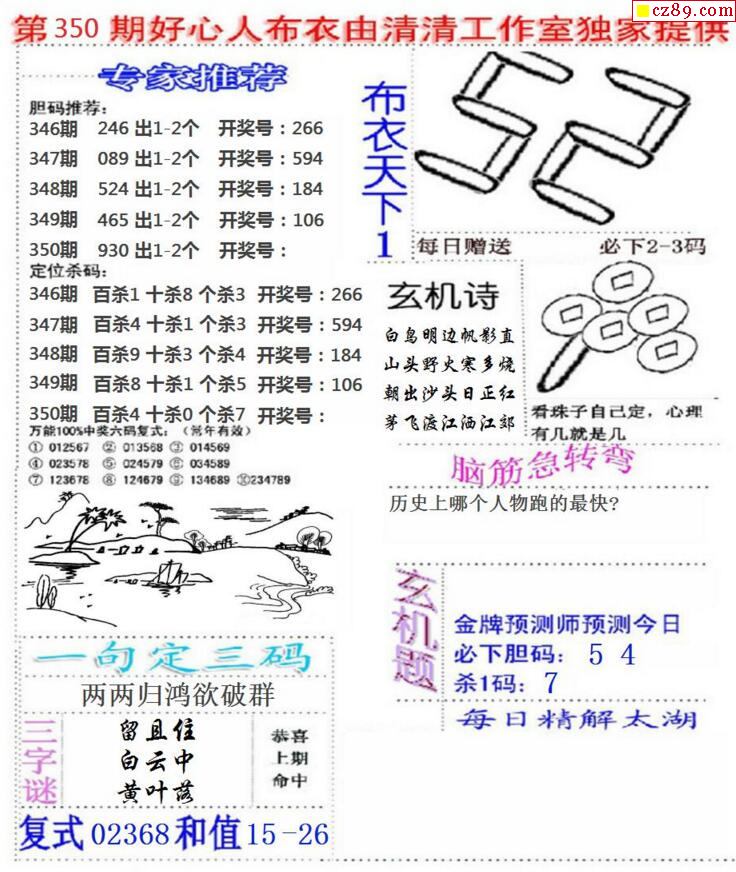 cz89.com
第350期好心人布衣由清清工作室独家提供
专家推荐
胆码推荐:
346期 246 出1-2个 开奖号:266
347期 089 出1-2个 开奖号:594
348期 524 出1-2个 开奖号:184
349期 465 出1-2个 开奖号:106
350期 930 出1-2个 开奖号:
定位杀码:
346期 百杀1 十杀8 个杀3 开奖号:266
347期 百杀4 十杀1 个杀3 开奖号:594
348期 百杀9 十杀3 个杀4 开奖号:184
349期 百杀8 十杀1 个杀5 开奖号:106
350期 百杀4 十杀0 个杀7 开奖号:
万能100%中奖六码复式: (常年有效)
① 012567 ② 013568 ③ 014569
④ 023578 ⑤ 024579 ⑥ 034589
⑦ 123678 ⑧ 124679 ⑨ 134689 ⑩234789
一句定三码
两两归鸿欲破群
三字谜
留且住
白云中
黄叶落
恭喜
上期
命中
复式02368和值15-26
布衣天下1
52
每日赠送 必下2-3码
玄机诗
白鸟明边帆影直
山头野火寒多烧
朝出沙头日正红
茅飞渡江洒江郊
看珠子自己定，心理
有几就是几
脑筋急转弯
历史上哪个人物跑的最快?
玄机题
金牌预测师预测今日
必下胆码: 5 4
杀1码: 7
每日精解太湖